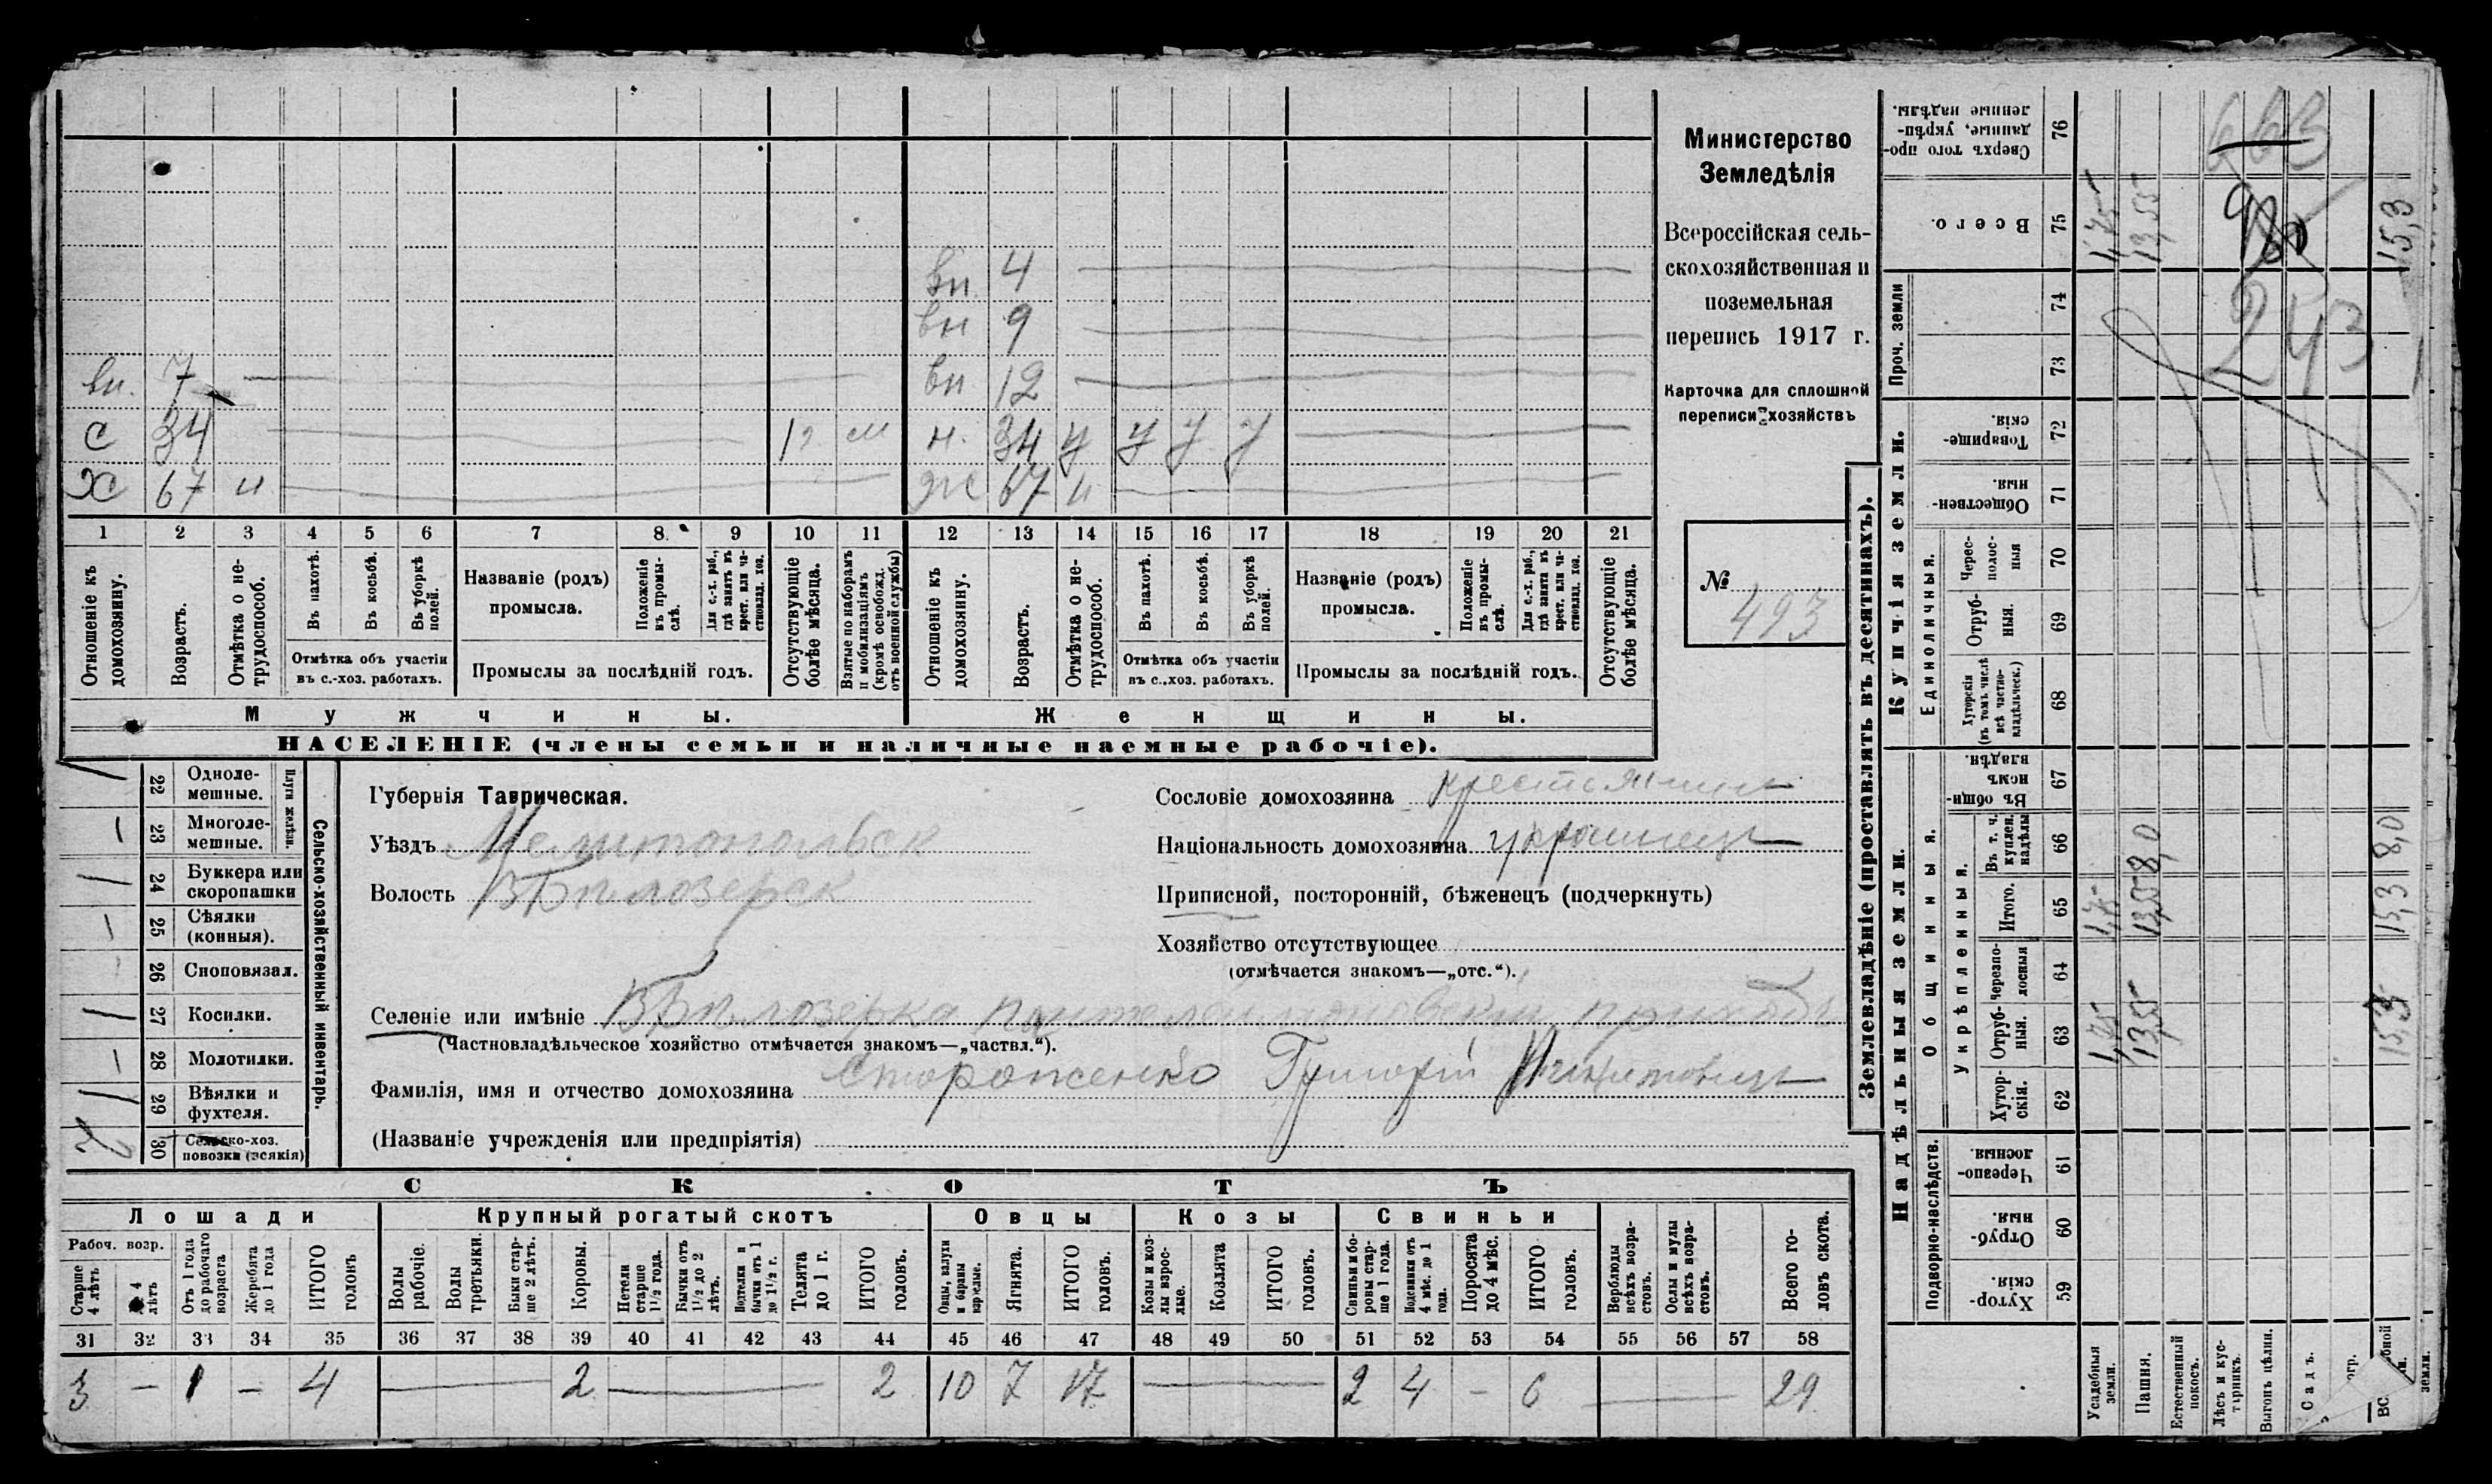 Министерство
Земледѣлія
Всероссійская сель-
скохозяйственная и
поземельная
перепись 1917 г.
Карточка для сплошной
переписи хозяйствъ
№ 493
вн. 4
вн 9
вн. 7 вн 12
с 34 12 м н. 34 у у у у
Х 67 н ж 67 н
1 2 3 4 5 6 7 8 9 10 11 12 13 14 15 16 17 18 19 20 21
Отношеніе къ домохозяину.
Возрастъ.
Отмѣтка о не-трудоспособ.
Въ пахотѣ.
Въ косьбѣ.
Въ уборкѣ полей.
Отмѣтка объ участіи
въ с.-хоз. работахъ.
Названіе (родъ)
промысла.
Положеніе въ промы-слѣ.
Для с.-х. раб., гдѣ занятъ въ крест. или ча-стновлад. хоз.
Промыслы за послѣдній годъ.
Отсутствующіе болѣе мѣсяца.
Взятые по наборамъ и мобилизаціямъ (кромѣ освобожд. отъ военной службы)
Отношеніе къ домохозяину.
Возрастъ.
Отмѣтка о не-трудоспособ.
Въ пахотѣ.
Въ косьбѣ.
Въ уборкѣ полей.
Отмѣтка объ участіи
въ с.-хоз. работахъ.
Названіе (родъ)
промысла.
Положеніе въ промы-слѣ.
Для с.-х. раб., гдѣ занята въ крест. или ча-стновлад. хоз.
Промыслы за послѣдній годъ.
Отсутствующіе болѣе мѣсяца.
Мужчины. Женщины.
НАСЕЛЕНІЕ (члены семьи и наличные наемные рабочіе).
Сельско-хозяйственный инвентарь.
Плуги желѣзн.
1 22 Одноле-мешные.
– 23 Многоле-мешные.
1 24 Буккера или скоропашки
– 25 Сѣялки (конныя).
26 Сноповязал.
1 27 Косилки.
– 28 Молотилки.
1 29 Вѣялки и фухтеля.
2 30 Сельско-хоз. повозки (всякія)
Губернія Таврическая.
Уѣздъ Мелитопольск
Волость В Бѣлозерск
Сословіе домохозяина крестьянин
Національность домохозяина украинец
Приписной, посторонній, бѣженецъ (подчеркнуть)
Хозяйство отсутствующее
(отмѣчается знакомъ—„отс.“).
Селеніе или имѣніе В Бѣлозерка Пантелеймоновскій приходъ
(Частновладѣльческое хозяйство отмѣчается знакомъ—„частвл.“).
Фамилія, имя и отчество домохозяина Стороженко Григорій Никитович
(Названіе учрежденія или предпріятія)
СКОТЪ
Лошади Крупный рогатый скотъ Овцы Козы Свиньи
Рабоч. возр.
Старше 4 лѣтъ
4 лѣтъ
Отъ 1 года до рабочаго возраста
Жеребята до 1 года
ИТОГО головъ
Волы рабочіе.
Волы третьяки.
Быки стар-ше 2 лѣтъ.
Коровы.
Нетели старше 1½ года.
Бычки отъ 1½ до 2 лѣтъ.
Подтелки и бычки отъ 1 до 1½ г.
Телята до 1 г.
ИТОГО головъ.
Овцы, валухи и бараны взрослые.
Ягнята.
ИТОГО головъ.
Козы и коз-лы взрос-лые.
Козлята
ИТОГО головъ.
Свиньи и бо-ровы стар-ше 1 года.
Подсвинки отъ 4 мѣс. до 1 года.
Поросята до 4 мѣс.
ИТОГО головъ.
Верблюды всѣхъ возра-стовъ.
Ослы и мулы всѣхъ возра-стовъ.
Всего го-ловъ скота.
31 32 33 34 35 36 37 38 39 40 41 42 43 44 45 46 47 48 49 50 51 52 53 54 55 56 57 58
3 – 1 – 4 2 2 10 7 17 2 4 – 6 29
Землевладѣніе (проставлять въ десятинахъ).
Купчія земли.
Надѣльныя земли.
Проч. земли
Единоличныя.
Общинныя.
Укрѣпленныя.
Подворно-наслѣдств.
76 Сверхъ того про-данные, укрѣп-ленные надѣлы.
75 Всего. 1,75 13,55 15,3
74
73
72 Товарище-скія.
71 Обществен-ныя.
70 Черес-полос-ныя
69 Отруб-ныя.
68 Хуторскія (въ томъ числѣ всѣ частно-владѣльческ.)
67 Въ общи-номъ владѣн.
66 Въ т. ч. куплен. надѣлы 8,0 8,0
65 Итого. 1,75 13,55 15,3
64 Черезпо-лосныя
63 Отруб-ныя. 1,75 13,55 15,3
62 Хутор-скія.
61 Черезпо-лосныя.
60 Отруб-ныя.
59 Хутор-скія.
Усадебныя земли.
Пашня.
Естественный покосъ.
Лѣсъ и кус-тарникъ.
Выгонъ цѣлин.
Садъ.
огр.
ВС
бной
земли.
663
243